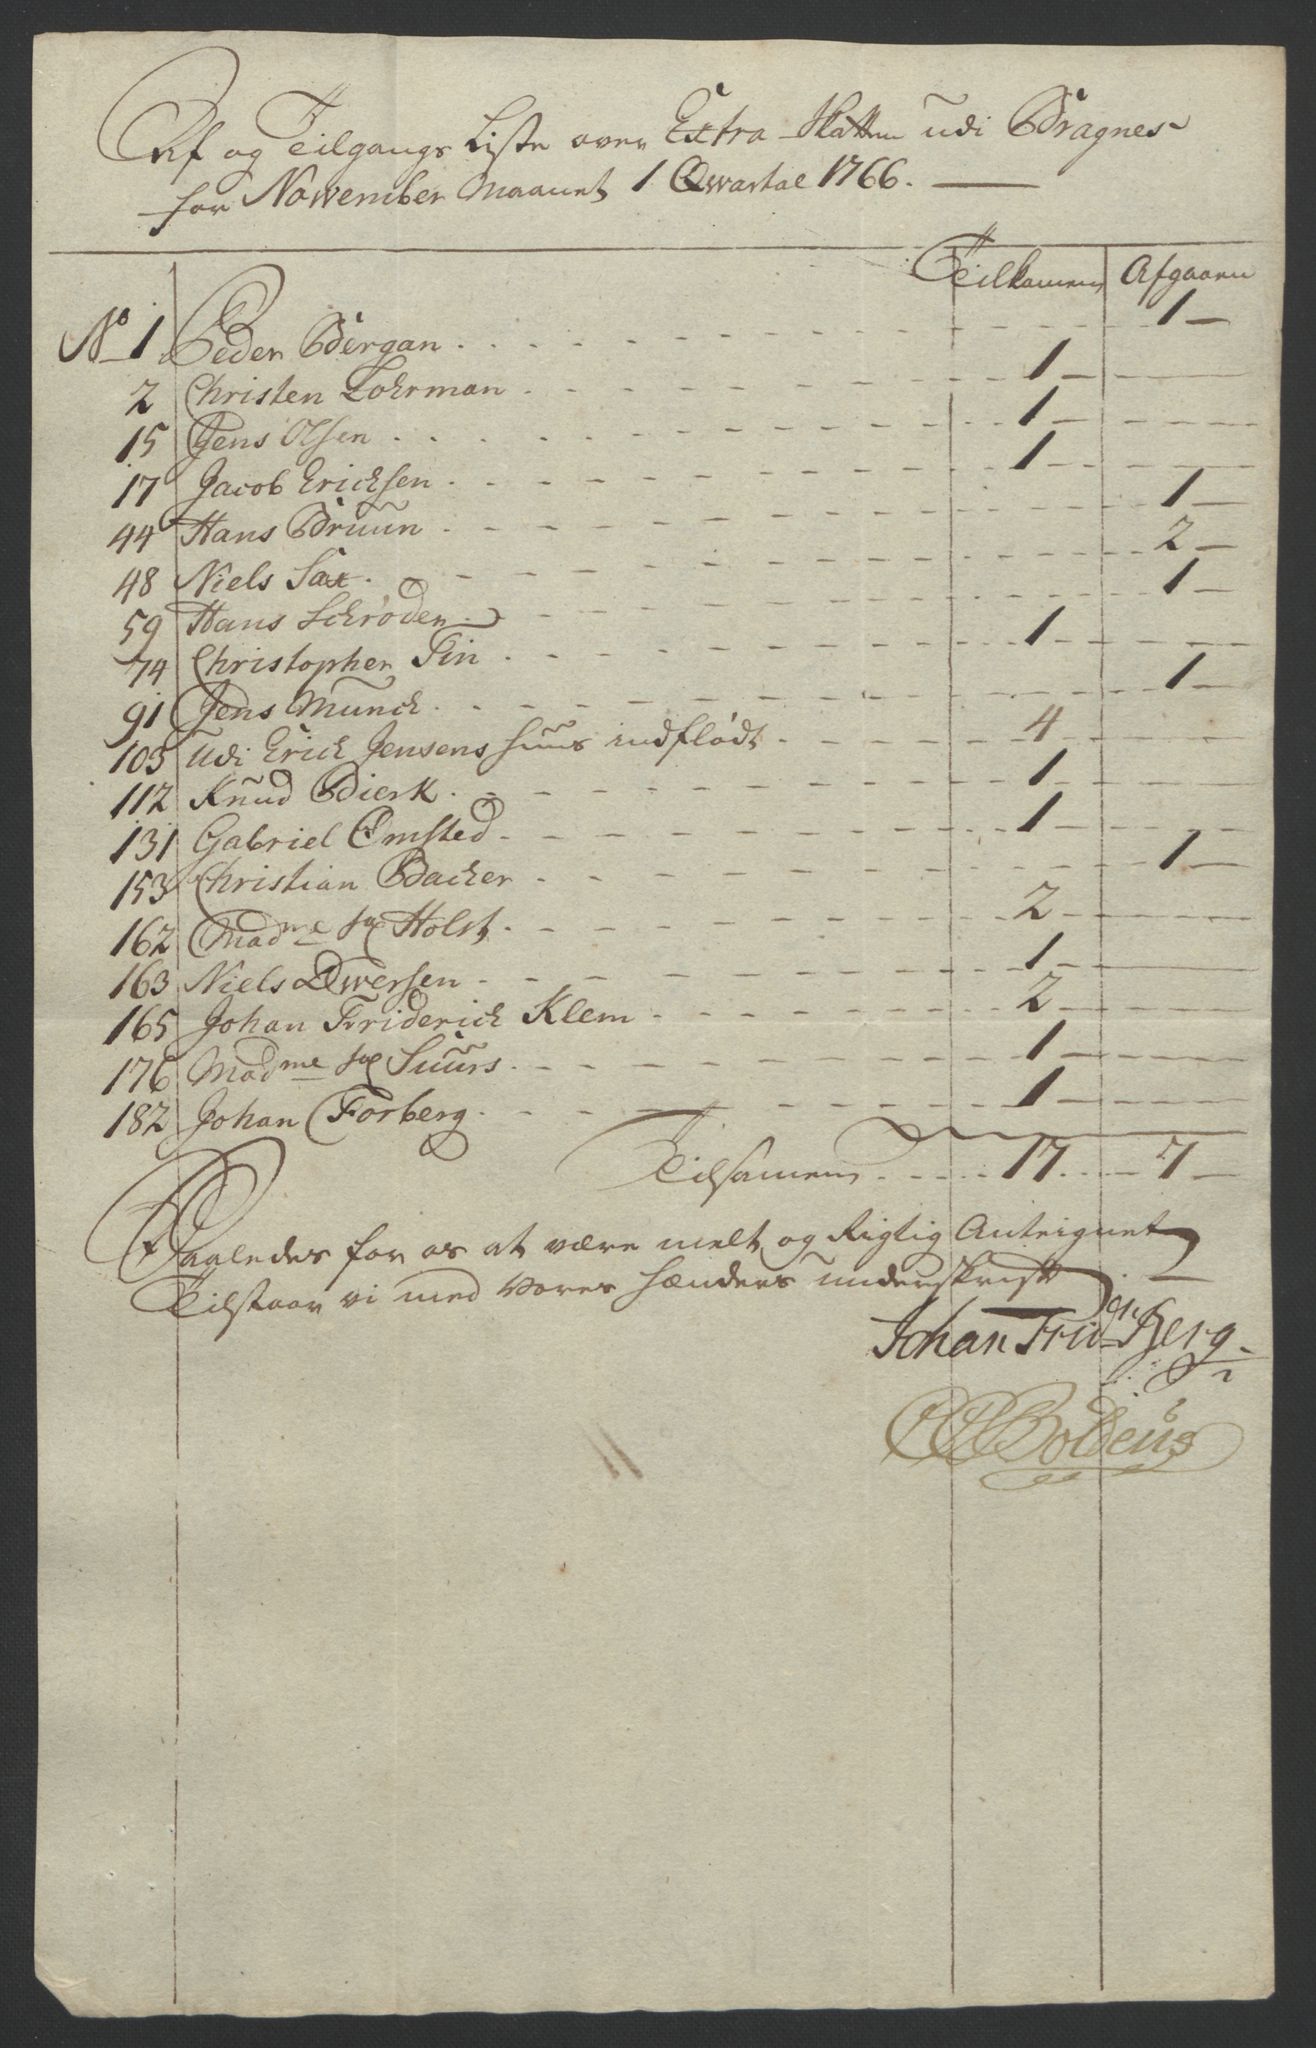 Af og Tilgangs Liste over Extra Skatten udi Bragnes
for November Maanet 1 Qwartal 1766.
Tilkomen Afgaaen
No 1 Peder Bergan 1
2 Christen Lohrman 1
15 Jens Olsen 1
17 Jacob Ericksen 1
44 Hans Bruun 1
48 Niels Sax 2
59 Hans Schrøder 1
74 Christopher Fin 1
91 Jens Munck 1
103 Udi Erick Jensens huus indflødt 4
112 Knud Bierk 1
131 Gabriel Omsted 1
153 Christian Backer 1
162 Madme Sal Holst 2
163 Niels Qwersen 1
165 Johan Friderich Klem 2
176 Madme Sal Suurs 1
182 Johan Forberg 1
Tilsamen 17 7
Saaledes for os at være melt og Rigtig Anteignet
Tilstaar vi med Vores Hænders underskrift
Johan Fridr Berg
Boldeus